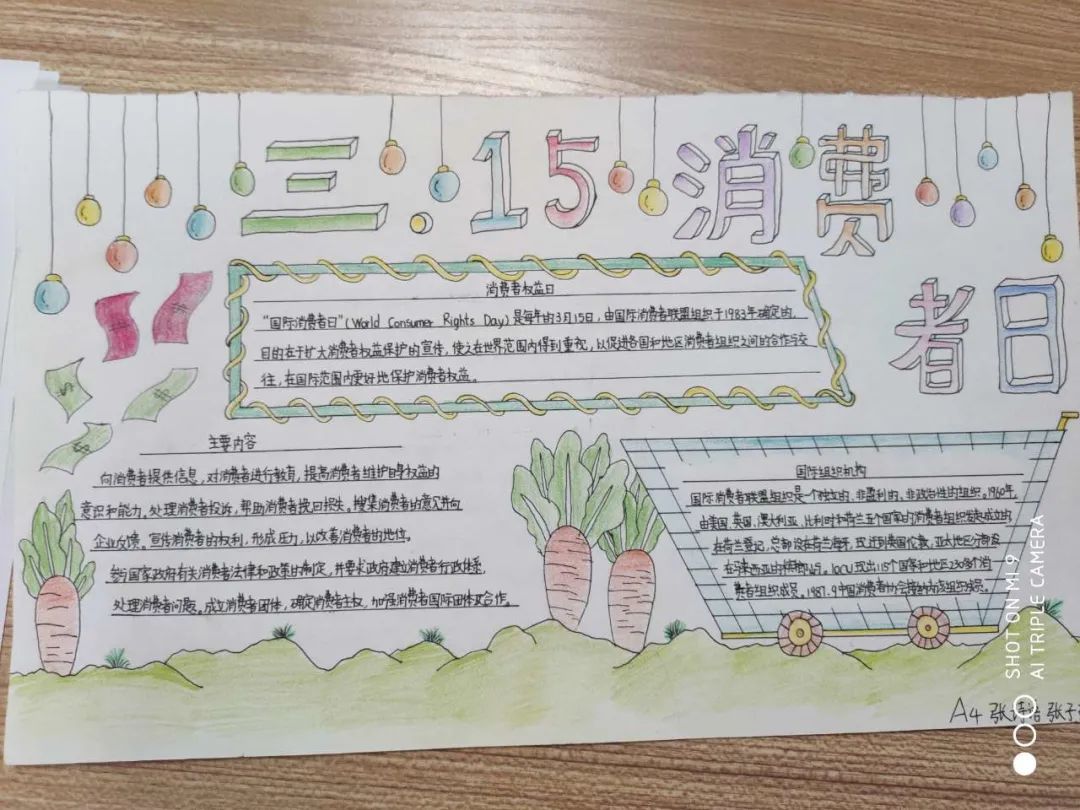 三.15消费
者日
消费者权益日
"国际消费者日"(World Consumer Rights Day)是每年的3月15日,由国际消费者联盟组织于1983年确定的,
目的在于扩大消费者权益保护的宣传,使之在世界范围内得到重视,以促进各国和地区消费者组织之间的合作与交
往,在国际范围内更好地保护消费者权益。
主要内容
向消费者提供信息,对消费者进行教育,提高消费者维护自身权益的
意识和能力。处理消费者投诉,帮助消费者挽回损失。搜集消费者的意见并向
企业反馈。宣传消费者的权利,形成压力,以改善消费者的地位。
参与国家政府有关消费者法律和政策的制定,并要求政府建立消费者行政体系,
处理消费者问题。成立消费者团体,确定消费者主权,加强消费者国际团体及合作。
国际组织机构
国际消费者联盟组织是一个独立的、非盈利的、非政治性的组织。1960年,
由美国、英国、澳大利亚、比利时和荷兰五个国家的消费者组织发起成立的
在荷兰登记,总部设在荷兰海牙,现迁到英国伦敦,亚太地区分部设
在马来西亚的槟榔屿。IOCU现有115个国家和地区230多个消
费者组织成员。1987.9中国消费者协会被接纳为该组织成员。
A4 张 张子
SHOT ON MI 9
AI TRIPLE CAMERA